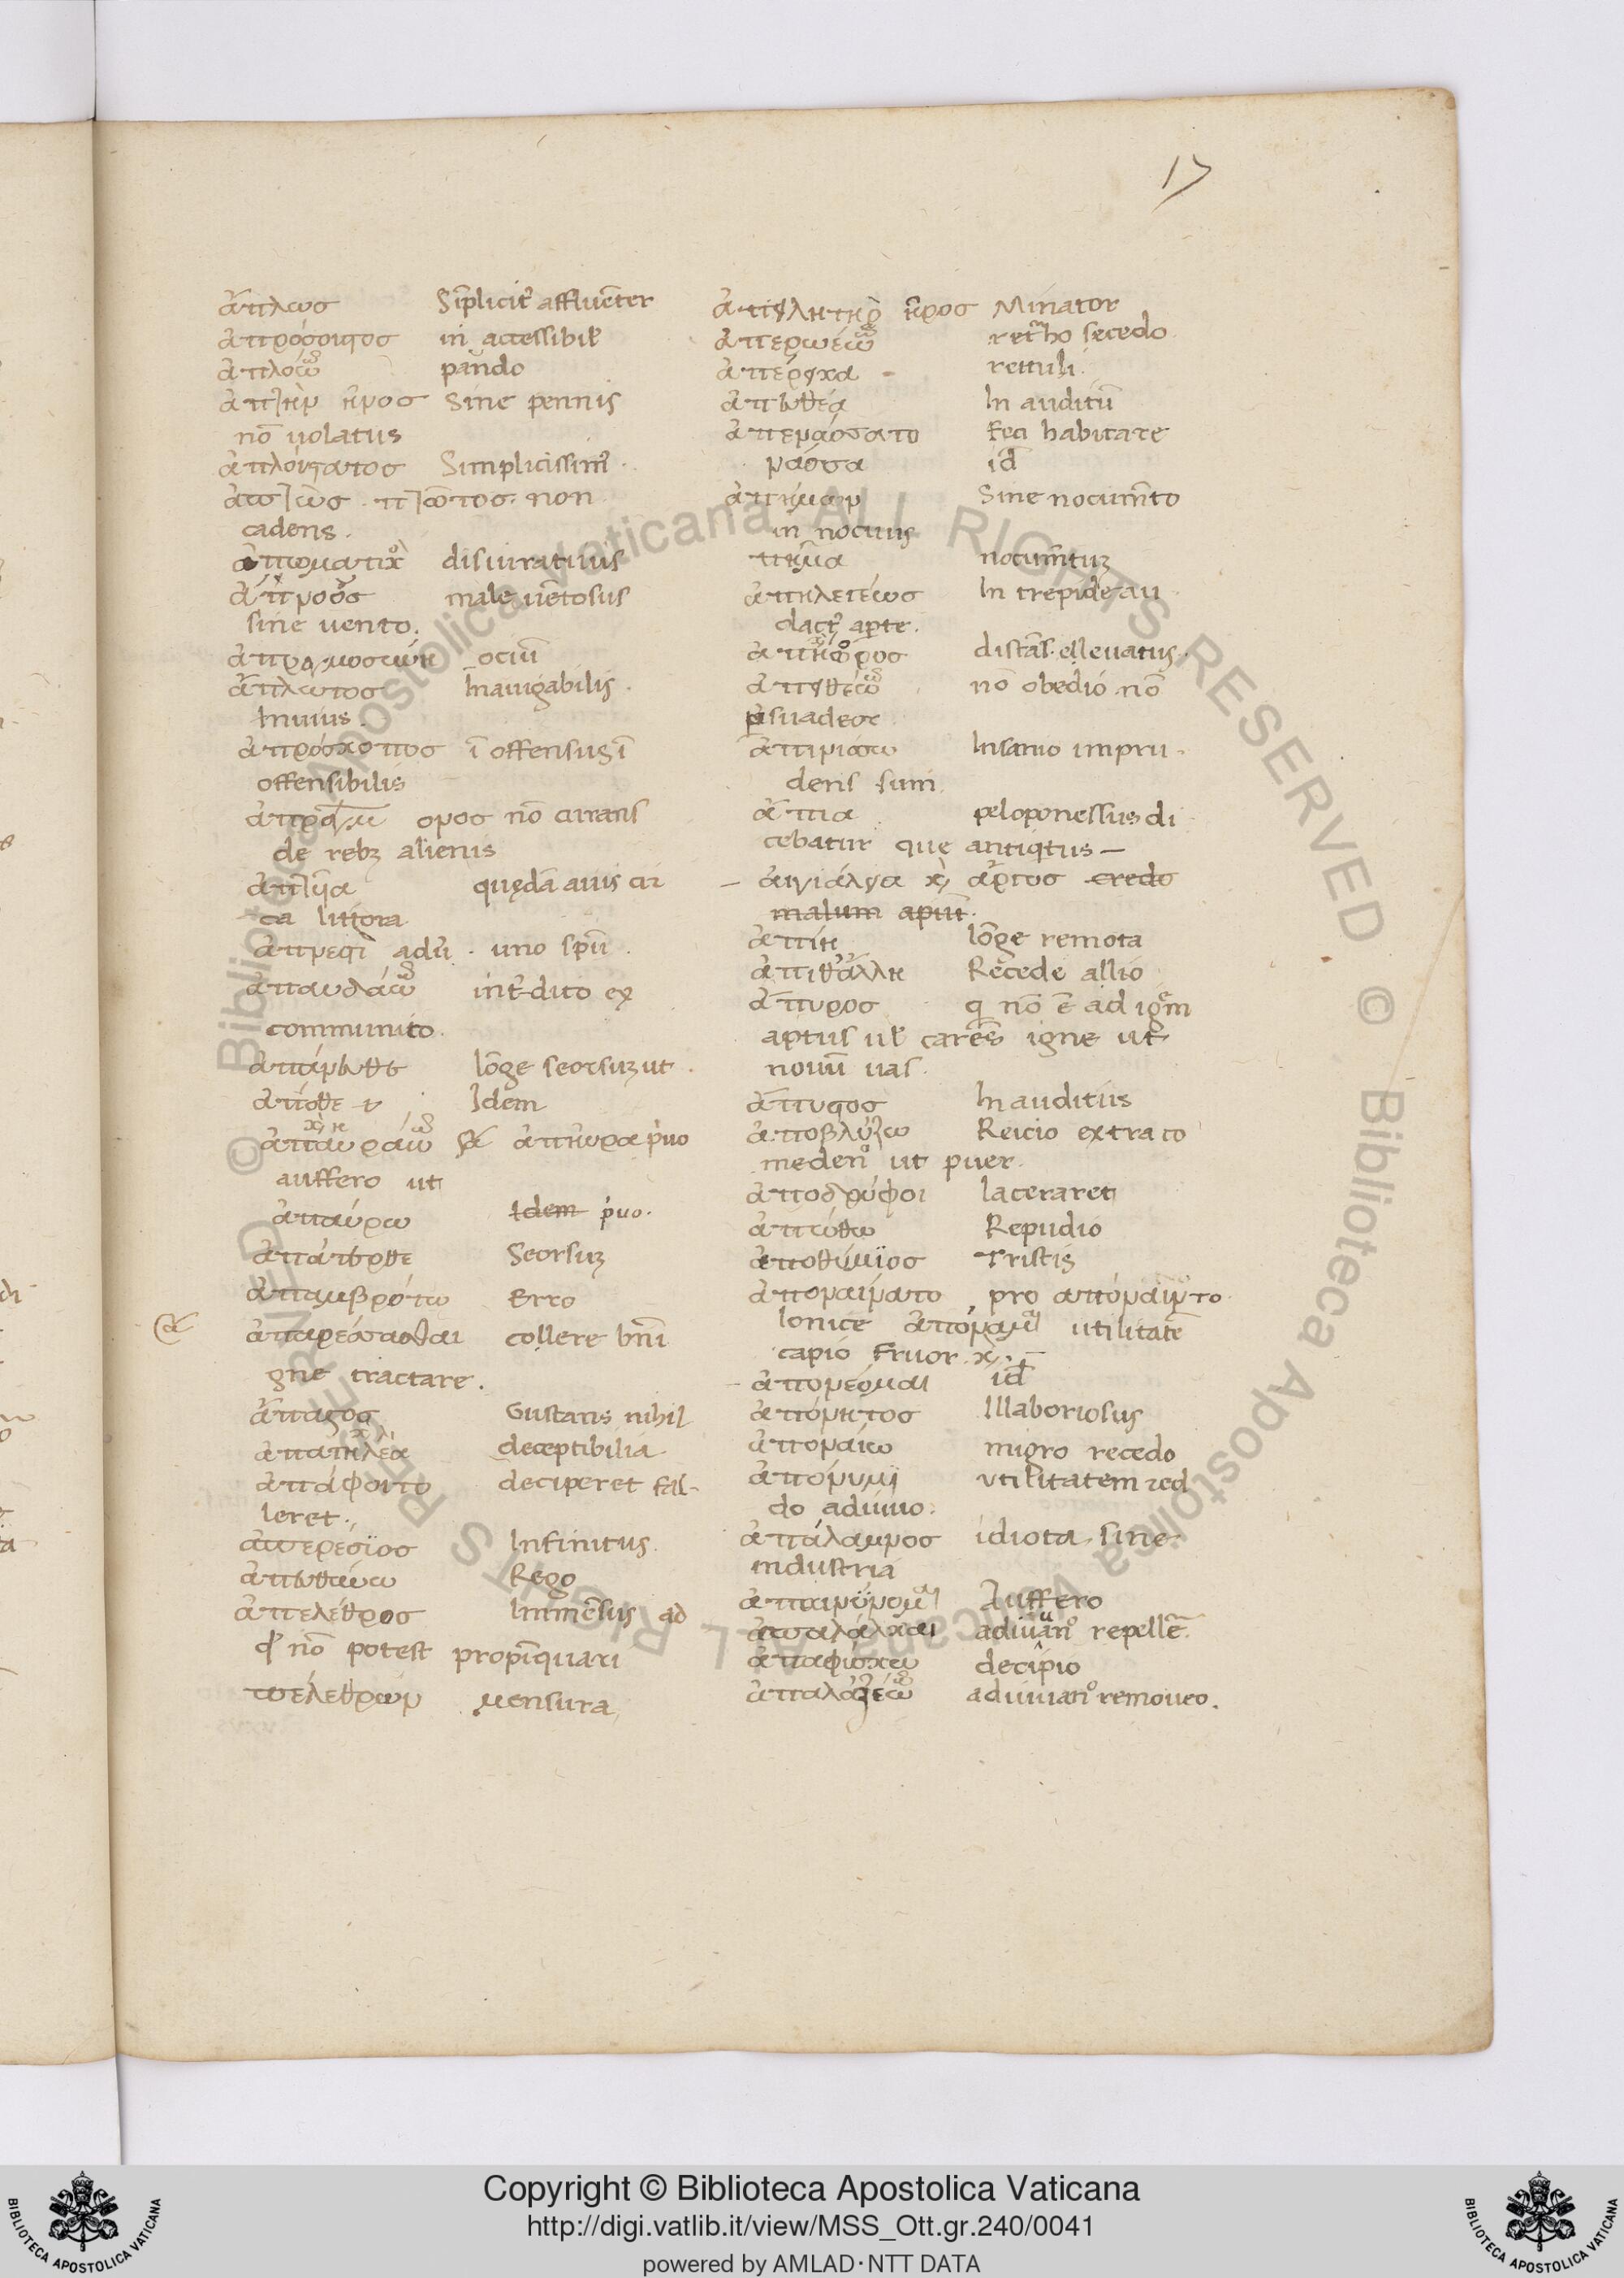 17
ἄπλως Sīplicit᾽ affluēter
ἀπρόσιτος in accessibil̄
ἀπλόω pando
ἀπτὴν ῆνος Sine pennis
nō uolatus
ἁπλόυστατος Simplicissim᾽
ἀπτὼς πτῶτος non
cadens.
disiuratiuus
ἄπνους male uētosus
sine uento.
ἀπραγμοσύνη ociū
ἄπλωτος Inauigabilis.
Inuius.
ἀπρόσκοπος ī offensus ī
offensibilis
ἀπράγμ ονος nō curans
de rebꝫ alienis
quędā auis cir
ca littora
ἀπνεστὶ adū. uno spū.
ἀπαυδάω int᾽dico ex
communico.
ἀπάνευθε lōge seorsuꝫ ut.
ἀπόθε ν Idem
ἀπαυράω ἀπηυρα p̄uo
auffero ut
ἀπαύρω Idem p̄uo.
ἀπάτερθε Seorsuꝫ
ἀπαμβρότω Erro
ἀπαρέσασθαι collere bnī
gne tractare.
ἄπαστος Gustans nihil
ἀπατηλὰ deceptibilia
ἀπάφοιτο deciperet fal-
leret.
ἀπερέσϊος Infinitus.
ἀπευθύνω Rego
ἀπέλεθρος Immēsus ad
qd nō potest propīquari
πέλεθρων mensura
ἀπειλητὴρ ῆρος Minator
ἀπερωέω retͣho secedo
ἀπέρεικα rettuli.
ἀπευθέα In auditū
ἀπενάσσατο feci habitare
νάσσα id̄
ἀπήμων Sine nocumēto
in nocuus
πῆμα nocumētuꝫ
ἀπηλεγέως In trepide au
dact᾽ aperte.
ἀπήορος distās. elleuatus.
ἀπειθέω nō obedio nō
ꝑsuadeor
ἀπινύσσω Insanio impru-
dens sum
ἄπια peloponessus di
cebatur que antiqtus —
αἰγιάλεια κ, ἄργος credo
malum apiū.
ἀπίη lōge remota
Recede allio
ἄπυρος q nō ē ad igēm
aptus ul̄ carēs igne ut
nouū uas.
ἄπυστος Inauditus
ἀποβλύζω Reicio extra co
medend᾽ ut puer.
ἀποδρύφοι laceraret
ἀπώθω Repudio
ἀποθύμϊος Tristis
ἀποναίνατο pro ἀπόναιντο
Ionice ἀπόναμαι utilitatē
capio fruor. κ,
ἀπονέομαι id̄
ἀπόνητος Illaboriosus
ἀποναίω migro recedo
ἀπόνυμϊ vtilitatem red
do adiuuo.
ἀπάλαμνος idiota. sine
industria
ἀπαινύνομαι Auffero
ἀπαλάλκαι adiuuand᾽ repellē
ἀπαφίσκω decipio
ἀπαλέξέω adiuuand᾽ remoueo.
© Biblioteca Apostolica Vaticana ALL RIGHTS RESERVED © Biblioteca Apostolica Vaticana ALL RIGHTS RESERVED
Copyright © Biblioteca Apostolica Vaticana
http://digi.vatlib.it/view/MSS_Ott.gr.240/0041
powered by AMLAD·NTT DATA
BIBLIOTECA APOSTOLICA VATICANA
BIBLIOTECA APOSTOLICA VATICANA